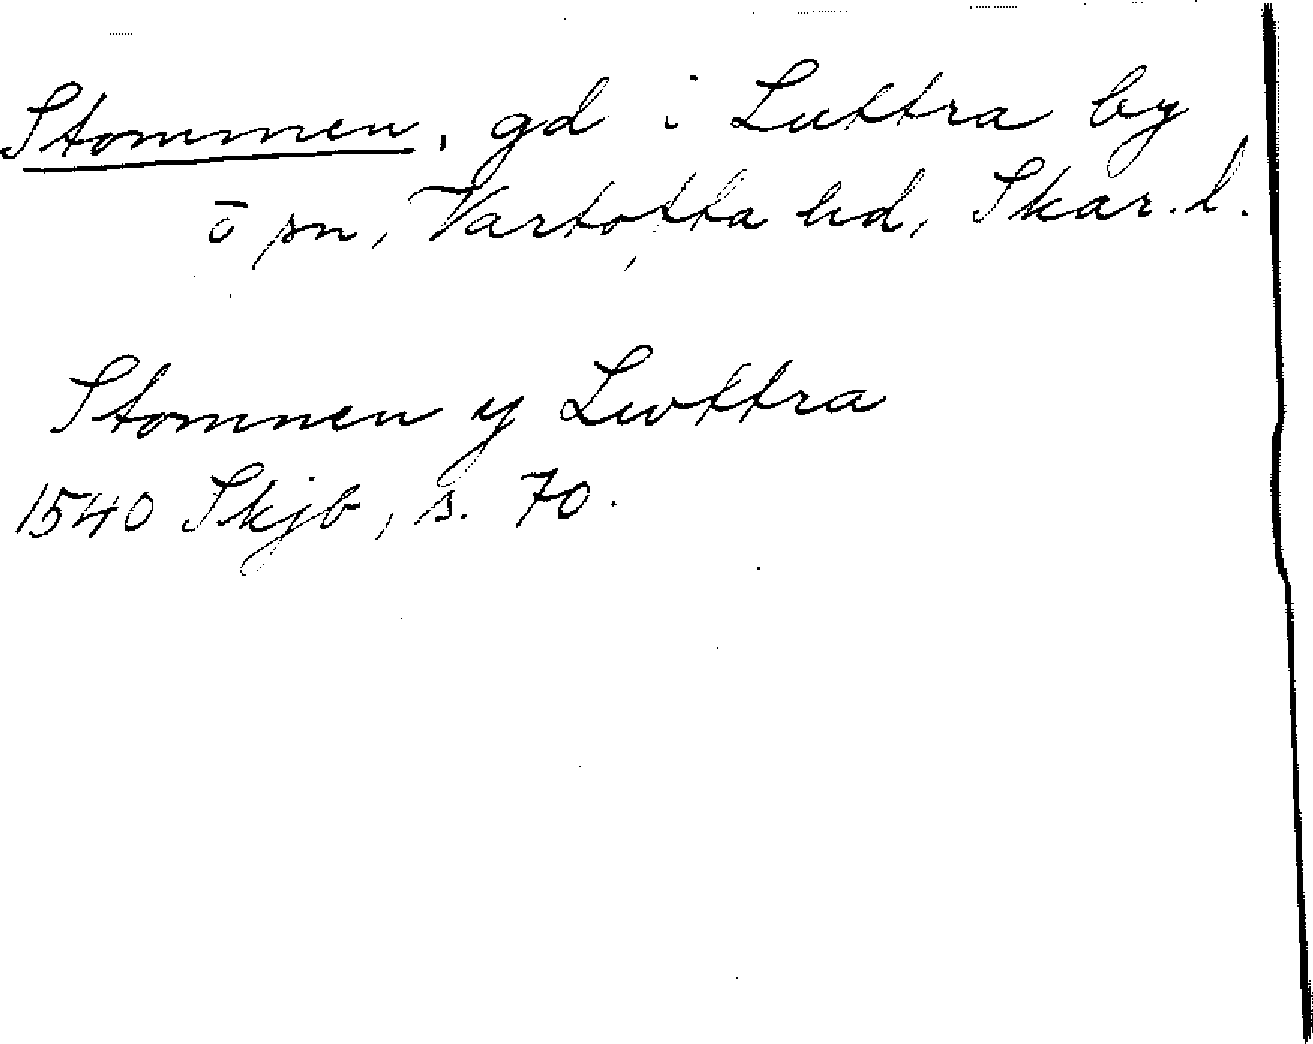 Stommen, gd i Luttra by
o sn, Vartofta hd, Skar. l.
Stomnen y Lwttra
1540 Skjb, s. 70.